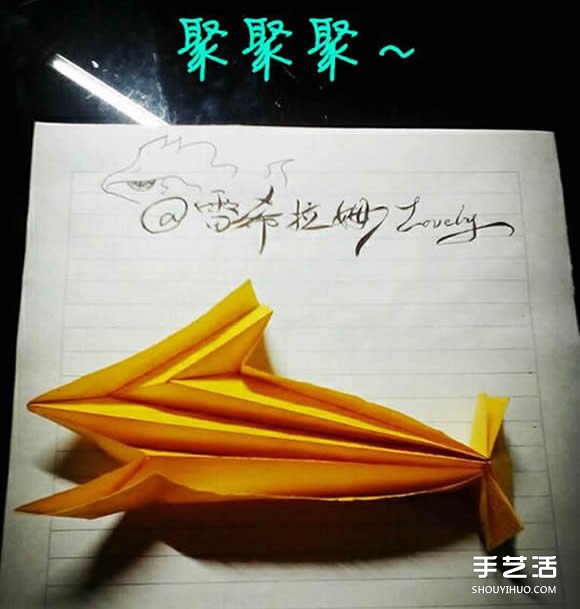 聚聚聚~
@雷希拉姆 Lovely
手艺活
SHOUYIHUO.COM